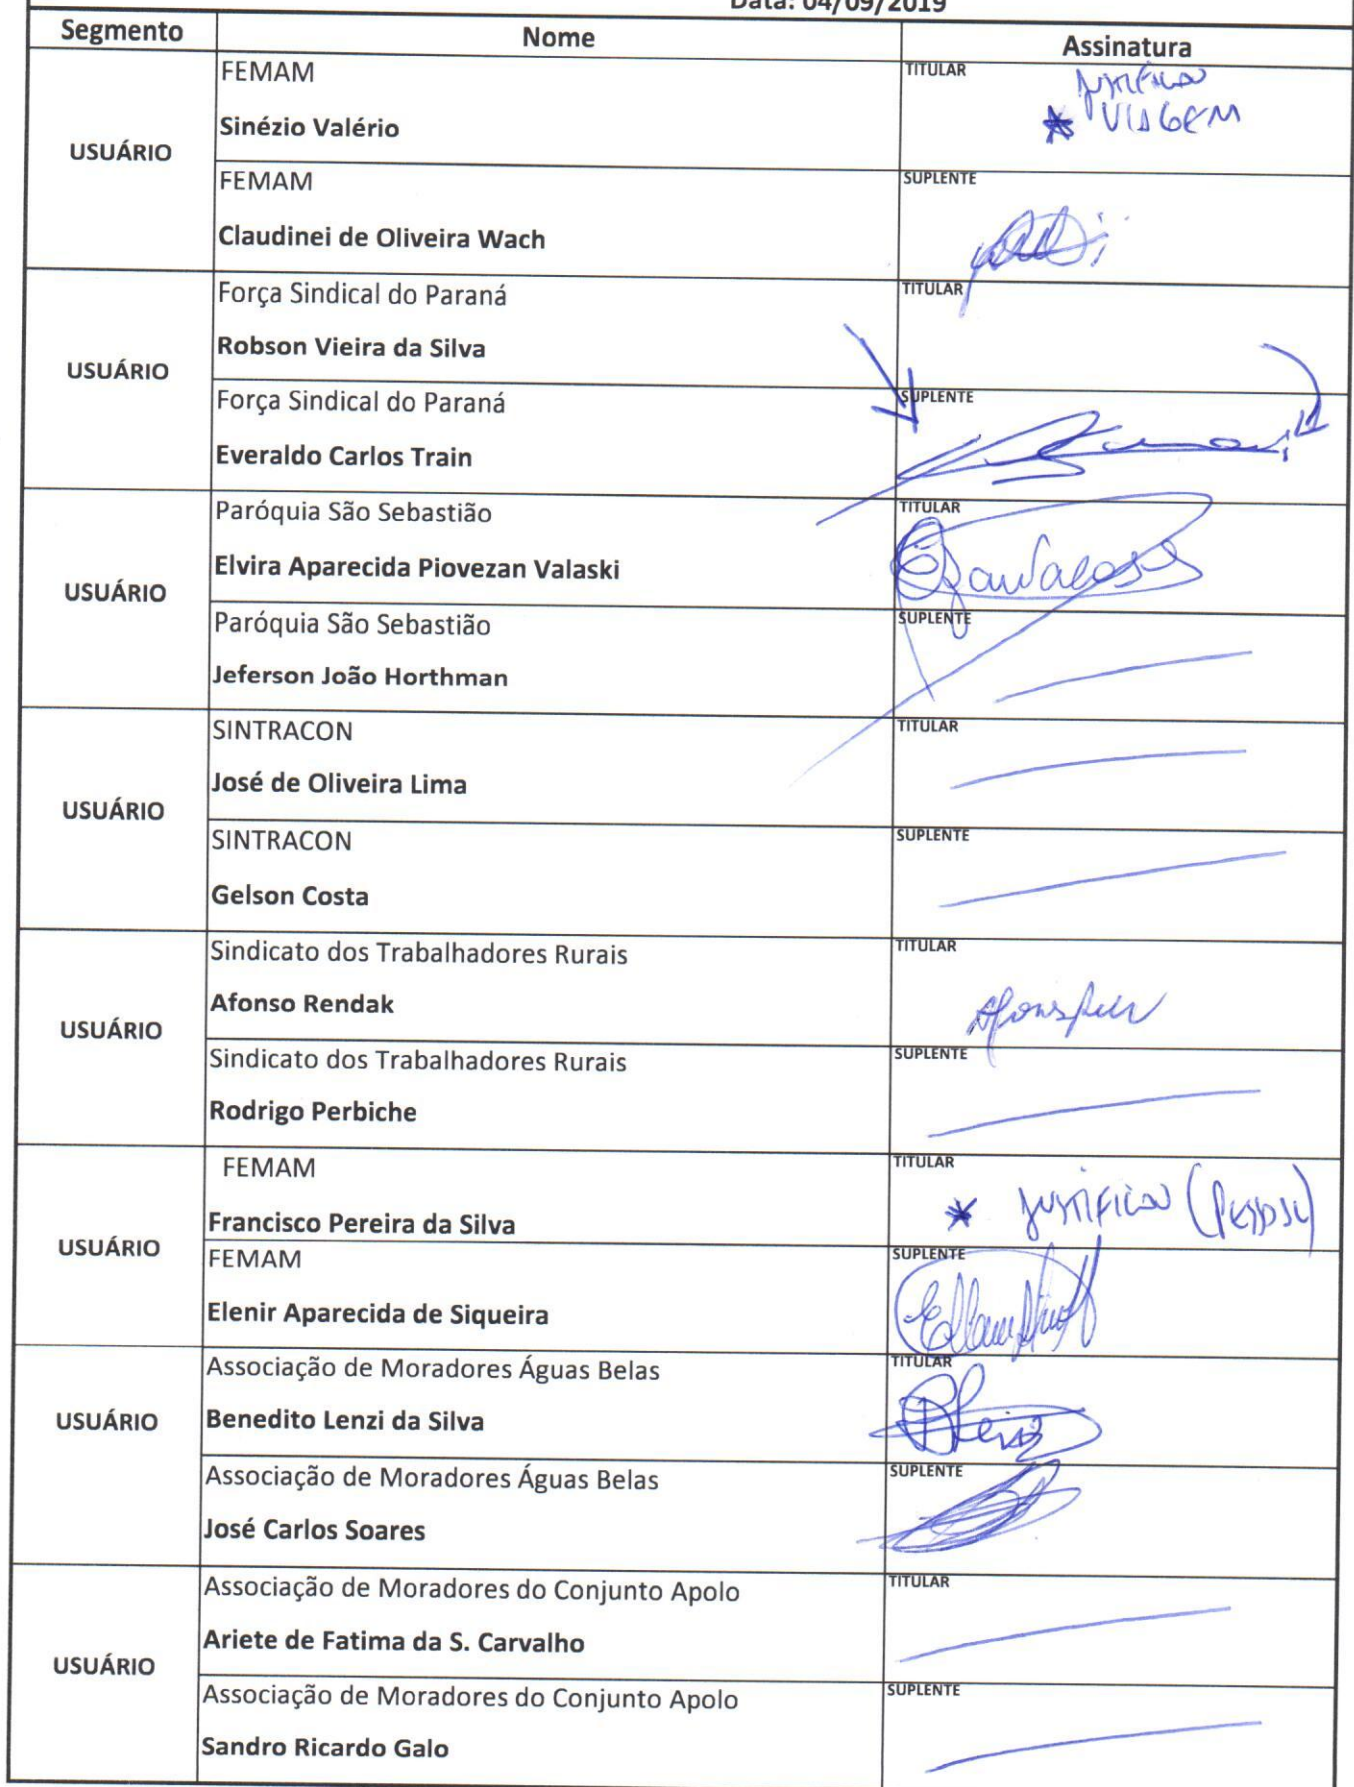 Data: 04/09/2019
Segmento Nome Assinatura
USUÁRIO
FEMAM
Sinézio Valério
TITULAR
JUSTIFICOU
* VIAGEM
FEMAM
Claudinei de Oliveira Wach
SUPLENTE
USUÁRIO
Força Sindical do Paraná
Robson Vieira da Silva
TITULAR
Força Sindical do Paraná
Everaldo Carlos Train
SUPLENTE
USUÁRIO
Paróquia São Sebastião
Elvira Aparecida Piovezan Valaski
TITULAR
Paróquia São Sebastião
Jeferson João Horthman
SUPLENTE
USUÁRIO
SINTRACON
José de Oliveira Lima
TITULAR
SINTRACON
Gelson Costa
SUPLENTE
USUÁRIO
Sindicato dos Trabalhadores Rurais
Afonso Rendak
TITULAR
Sindicato dos Trabalhadores Rurais
Rodrigo Perbiche
SUPLENTE
USUÁRIO
FEMAM
Francisco Pereira da Silva
TITULAR
* JUSTIFICOU
FEMAM
Elenir Aparecida de Siqueira
SUPLENTE
USUÁRIO
Associação de Moradores Águas Belas
Benedito Lenzi da Silva
TITULAR
Associação de Moradores Águas Belas
José Carlos Soares
SUPLENTE
USUÁRIO
Associação de Moradores do Conjunto Apolo
Ariete de Fatima da S. Carvalho
TITULAR
Associação de Moradores do Conjunto Apolo
Sandro Ricardo Galo
SUPLENTE